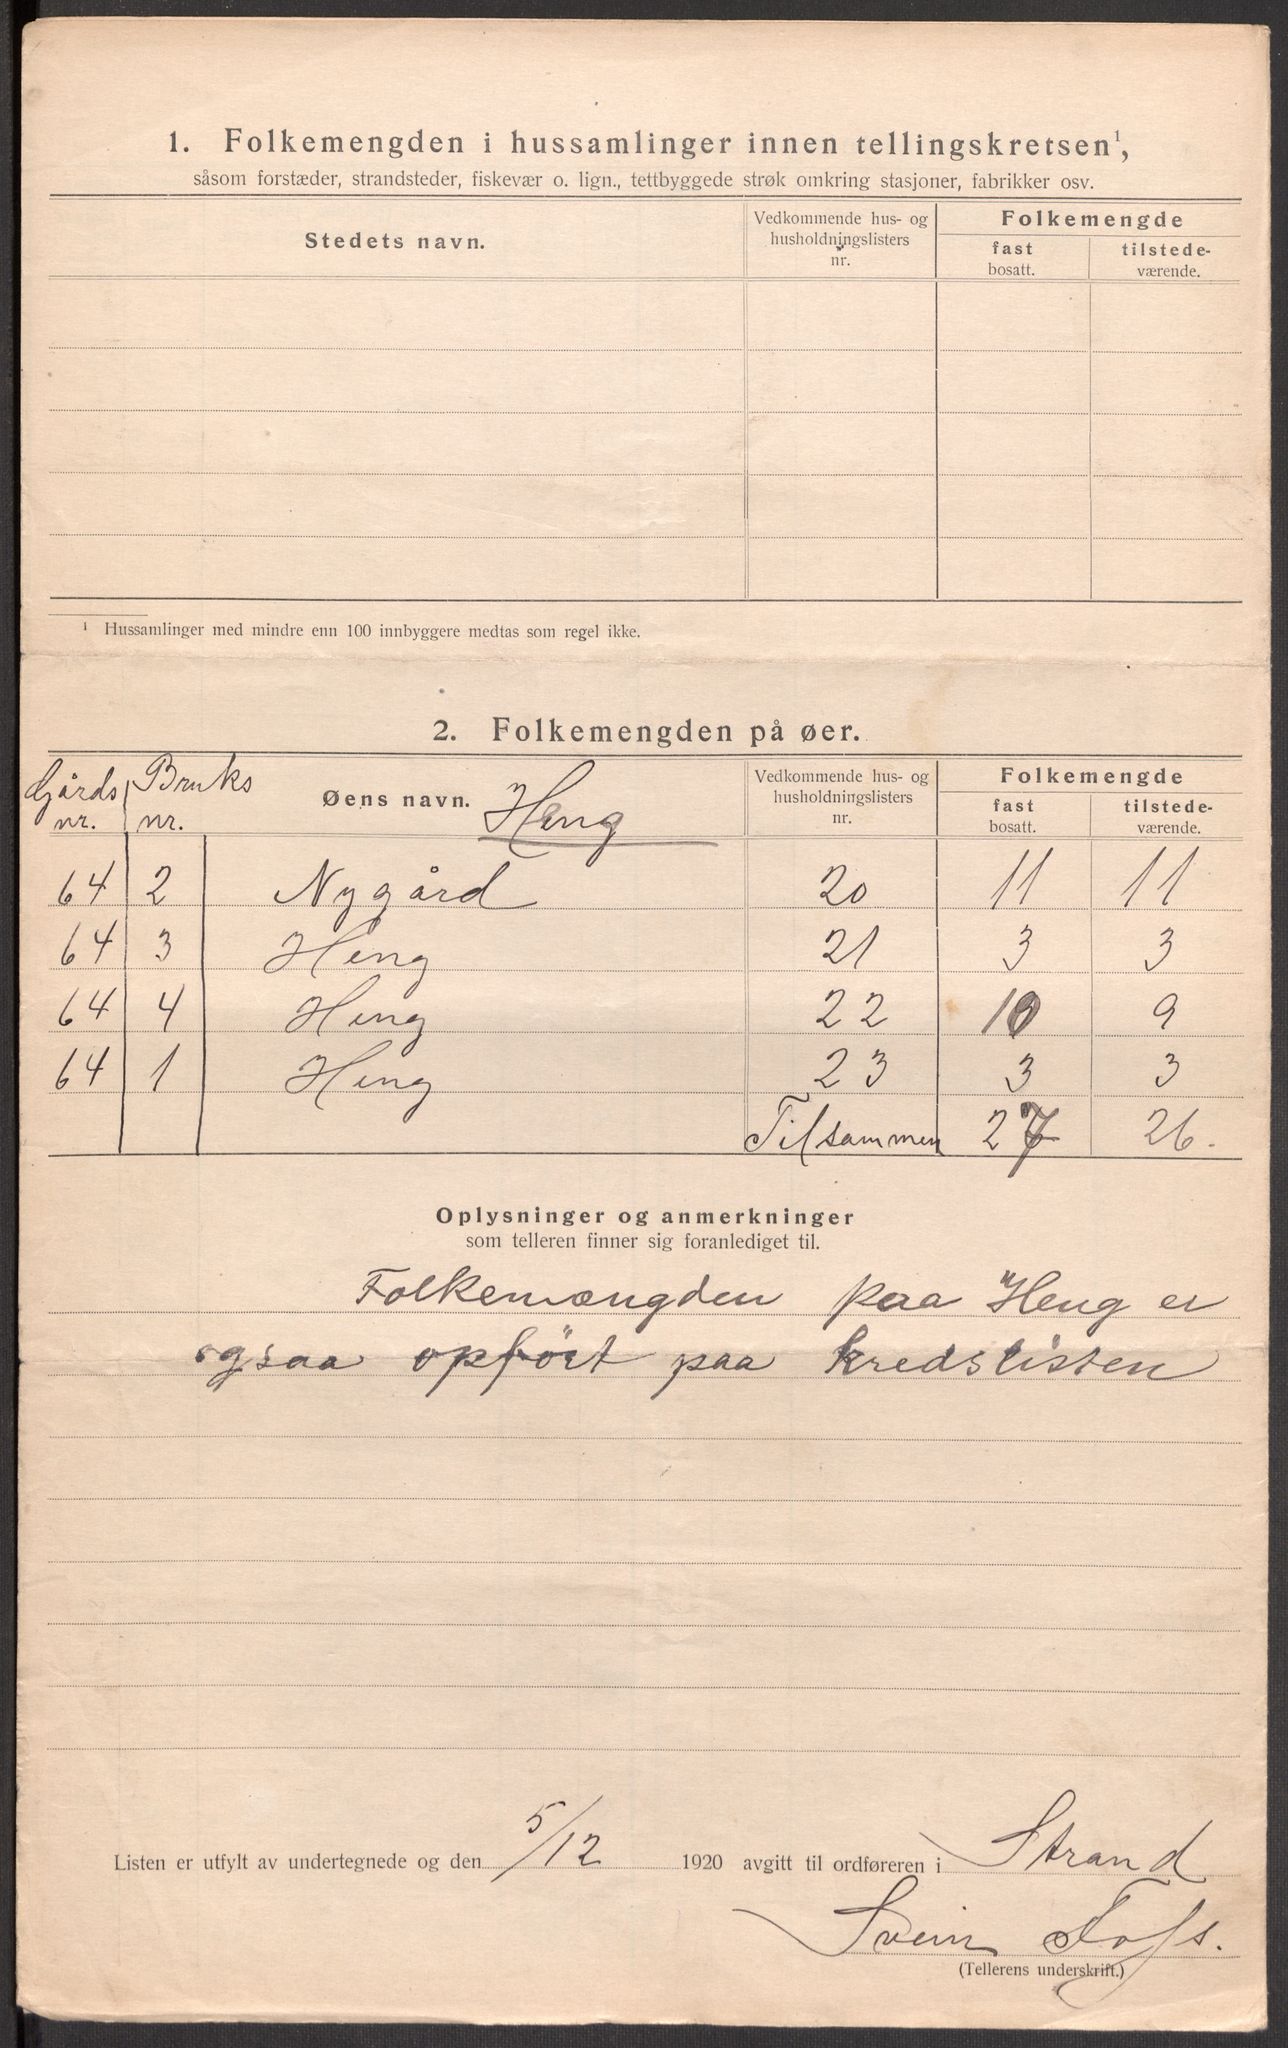 1. Folkemengden i hussamlinger innen tellingskretsen¹,
såsom forstæder, strandsteder, fiskevær o. lign., tettbyggede strøk omkring stasjoner, fabrikker osv.
Stedets navn. Vedkommende hus- og husholdningslisters nr. Folkemengde
fast bosatt. tilstede-værende.
¹ Hussamlinger med mindre enn 100 innbyggere medtas som regel ikke.
2. Folkemengden på øer.
Gårds nr. Bruks nr. Øens navn. Heng Vedkommende hus- og husholdningslisters nr. Folkemengde
fast bosatt. tilstede-værende.
64 2 Nygård 20 11 11
64 3 Heng 21 3 3
64 4 Heng 22 10 9
64 1 Heng 23 3 3
Tilsammen 27 26.
Oplysninger og anmerkninger
som telleren finner sig foranlediget til.
Folkemængden paa "Heng er
ogsaa opført paa kredslisten
Listen er utfylt av undertegnede og den 5/12 1920 avgitt til ordføreren i Strand
Svein
(Tellerens underskrift.)